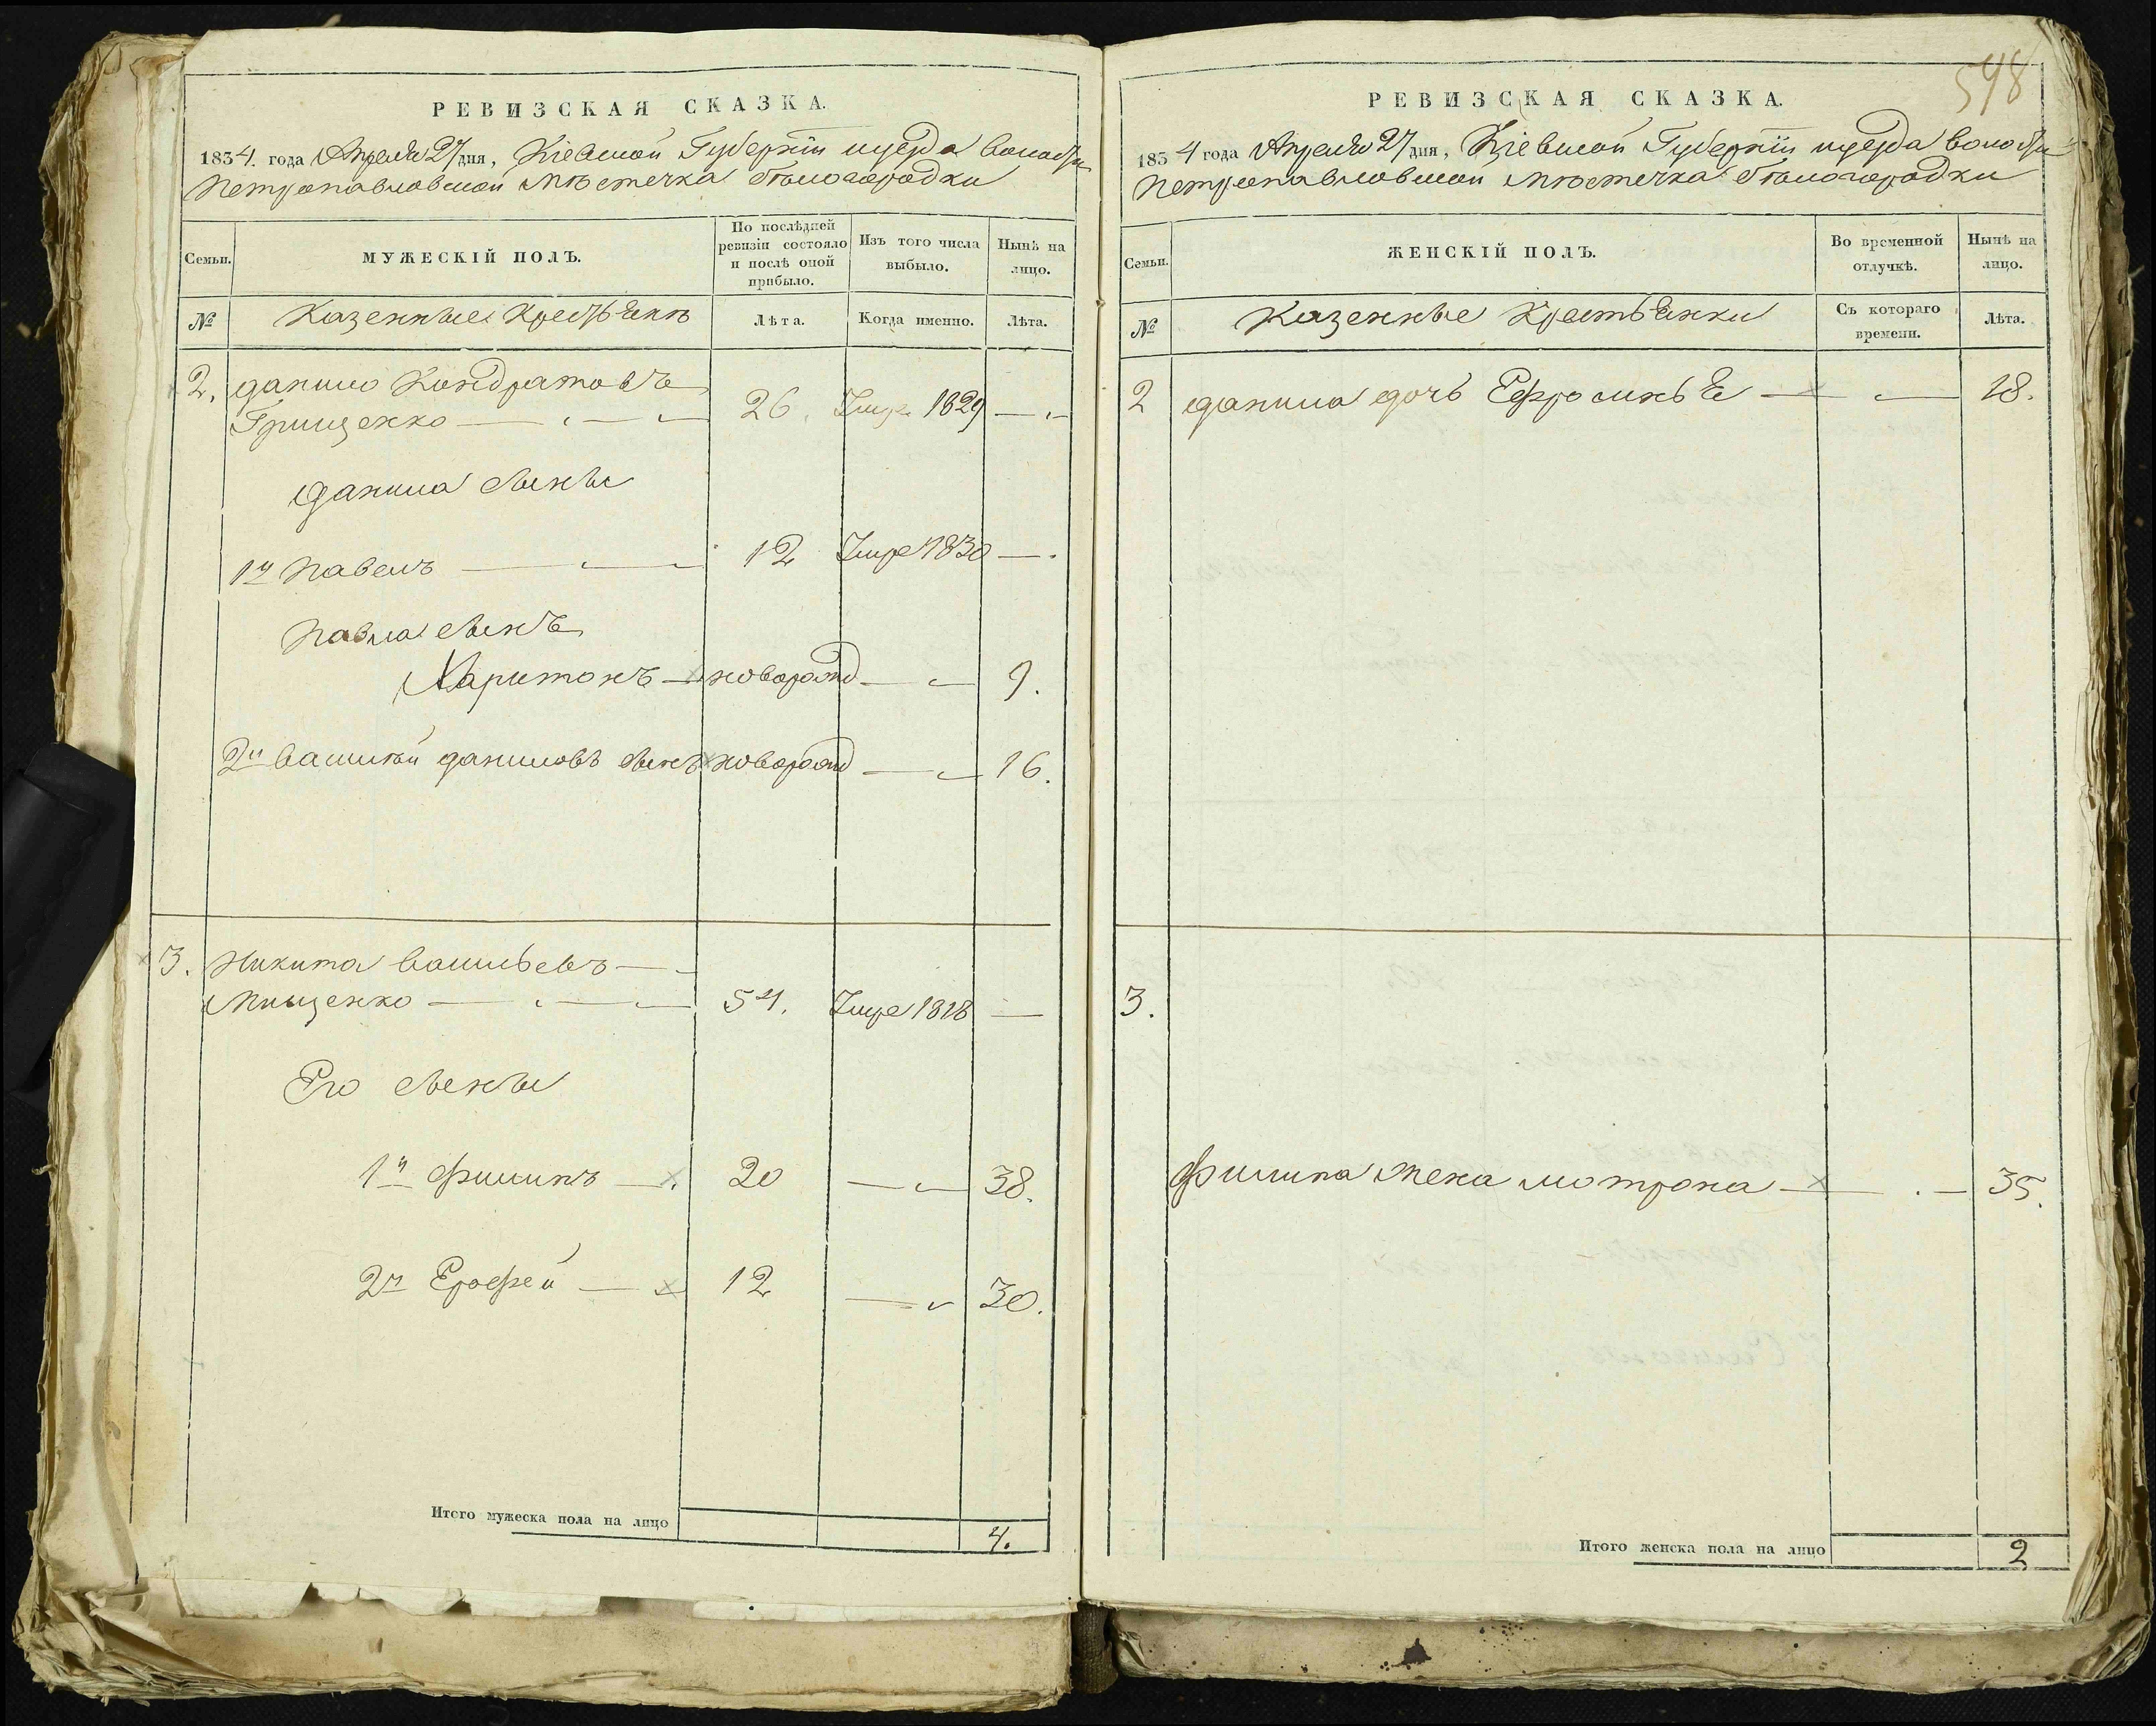 РЕВИЗСКАЯ СКАЗКА.
1834. года Апреля 27 дня, Кіевской Губерніи и уезда волости
Петропавловской Мѣстечка Бѣлогородки
Семьи.
МУЖЕСКІЙ ПОЛЪ.
По послѣдней ревизіи состояло и послѣ оной прибыло.
Изъ того числа выбыло.
Нынѣ на лицо.
№
Казенные Крестьяне
Лѣта.
Когда именно.
Лѣта.
2. Данило Кондратовъ
Грищенко — 26. Умре 1829 —
Данила сыны
1й Павелъ — 12 Умре 1830 —
Павла сынъ
Харитонъ — новорожд — 9.
2й Василий Даниловъ сынъ новорожд — 16.
3. Никита Васильевъ —
Мищенко — 54. Умре 1818 —
Его сыны
1й Филипъ — 20 — 38.
2й Ерофей — 12 — 30.
Итого мужеска пола на лицо 4.
548
РЕВИЗСКАЯ СКАЗКА.
1834 года Апреля 27 дня, Кіевской Губерніи и уезда волости
Петропавловской Мѣстечка Бѣлогородки
Семьи.
ЖЕНСКІЙ ПОЛЪ.
Во временной отлучкѣ.
Нынѣ на лицо.
№
Казенные Крестьянки
Съ котораго времени.
Лѣта.
2 Данила дочь Ефросинья — 18.
3.
Филипа жена Мотрона — 35.
Итого женска пола на лицо 2